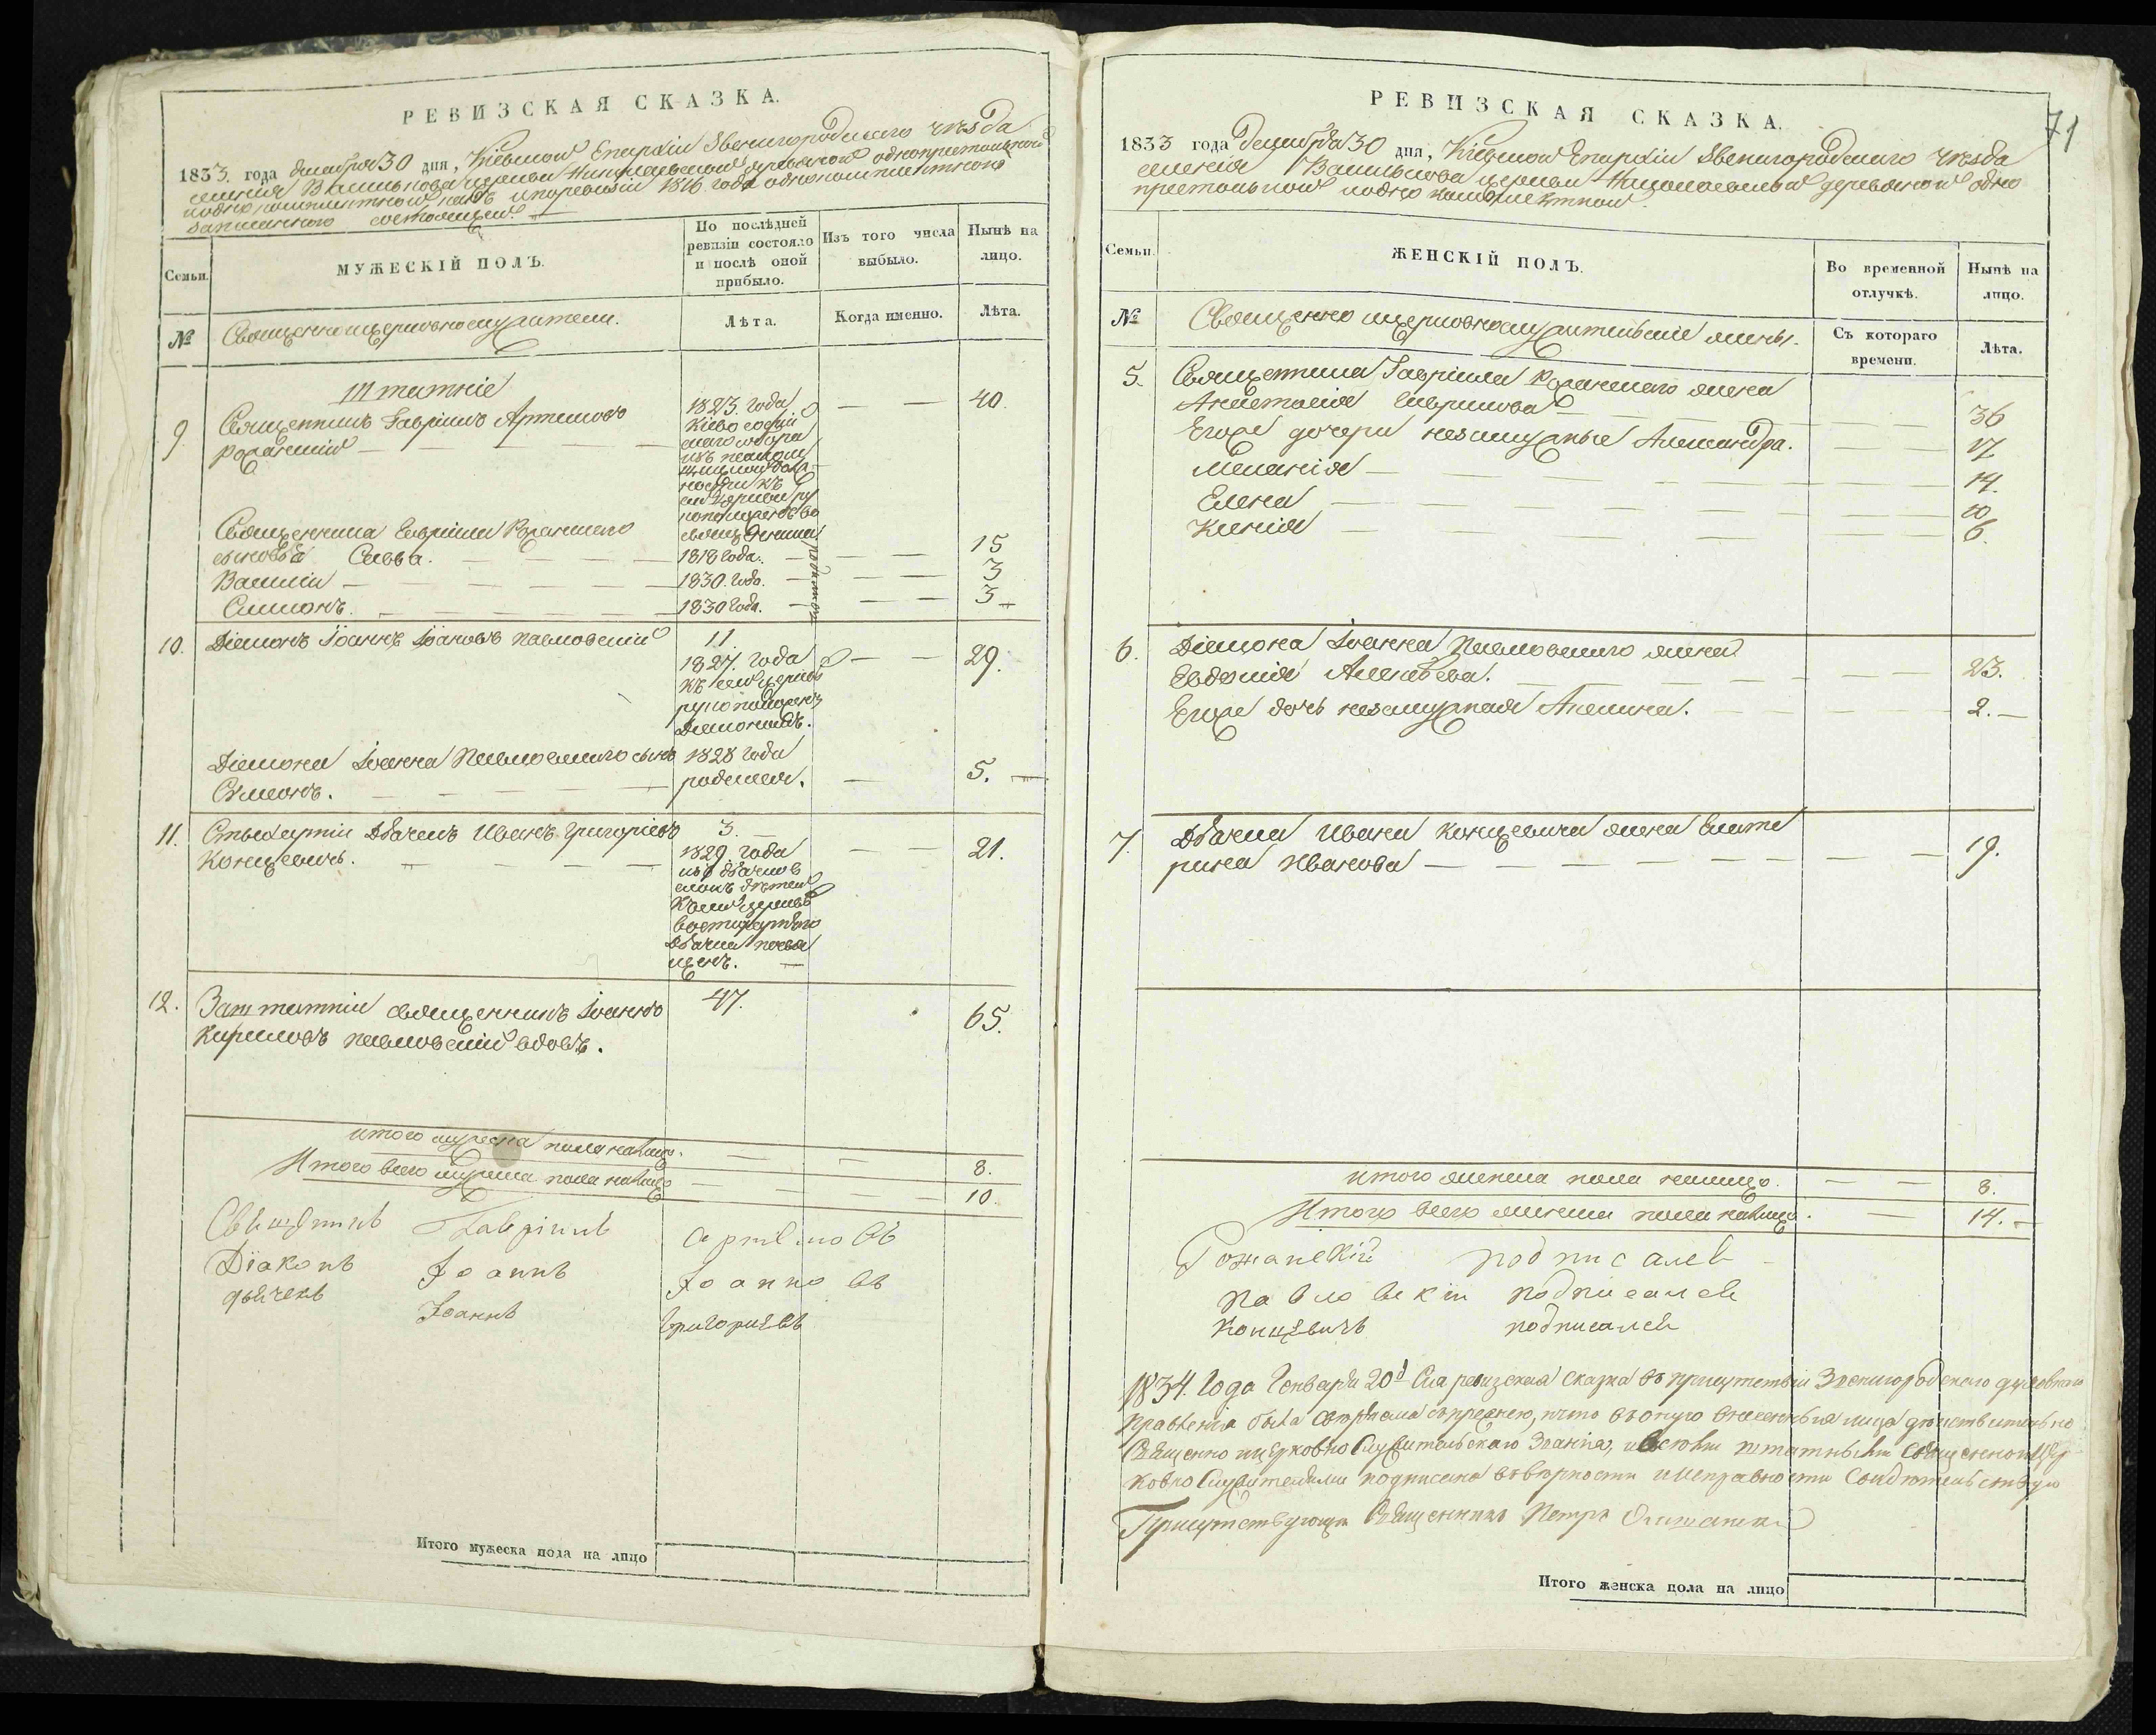 РЕВИЗСКАЯ СКАЗКА.
1833. года декабря 30 дня, Кіевской Епархіи Звенигородскаго уезда
селенія Василькова церкви Николаевской деревяной однопрестольной
однокомплектной какъ и по ревизіи 1816 года однокомплектною
записанною состоящей.
Семьи.
МУЖЕСКІЙ ПОЛЪ.
По послѣдней ревизіи состояло и послѣ оной прибыло.
Изъ того числа выбыло.
Нынѣ на лицо.
№
Священноцерковнослужители.
Лѣта.
Когда именно.
Лѣта.
Штатніе
9. Священникъ Гавріилъ Артемовъ
Рожанскій — — — 40.
1823. года
Кіево софій
скаго собора
изъ
къ
сей церкви ру
коположенъ во
священника
Священника Гавріила Рожанскаго
сыновья Савва. — 1818 года. — 15
Василій — 1830. года. — 3
Симеонъ. — 1830 года. — 3 —
родился
10. Діяконъ Іоаннъ Іоановъ Павловскій 11. 29.
1827. года
къ сей церкви
рукоположенъ
Діякономъ.
Діякона Іоанна Павловскаго сынъ 1828 года
Симеонъ. — родился. — 5. —
11. Стыхарній Дьячекъ Иванъ Григоріевъ 3. —
Концевичъ. — 1829. года — 21.
изъ дьячков
скихъ дѣтей
къ сей церкви
во стихарнаго
Дьячка посвя
щенъ. —
12. Заштатній священникъ Іоаннъ 47. 65.
Кириловъ Павловскій вдовъ.
Итого мужеска пола налицо. — 8.
Итого всего мужеска пола налицо — 10.
Священникъ Гавріилъ Артемовъ
Діаконъ Іоаннъ Іоанновъ
дьячекъ Іоаннъ Григориевъ
Итого мужеска пола на лицо
71
РЕВИЗСКАЯ СКАЗКА.
1833 года Декабря 30 дня, Кіевской Епархіи Звенигородскаго уезда
селенія Василькова церкви Николаевской деревяной одно
престольной однокомплектной.
Семьи.
ЖЕНСКІЙ ПОЛЪ.
Во временной отлучкѣ.
Нынѣ на лицо.
№
Священно церковнослужительскіе жены.
Съ котораго времени.
Лѣта.
5. Священника Гавріила Рожанскаго жена
Анастасія Гаврилова — 36
Егоже дочери незамужные Александра. — 17
Меланія — 14.
Елена — 10
Ксенія — 6.
6. Діякона Іоанна Павловскаго жена
Евдокія Алексѣева. — 23.
Егоже дочь незамужная Акилина. — 2. —
7. Дьячка Ивана Концевича жена Екате
рина Иванова — 19.
итого женска пола налицо. — 8.
Итого всего женска пола налицо. — 14. —
Рожанскій подписался
Павловскій подписался
Концевичъ подписался
1834. Года Генваря 20д Сія ревизская сказка въ присутствіи Звенигородского духовнаго
правленія была сверяема съ прежнею, и что въ оную внесенныя лица дѣйствительно
Священно и церковно Служительскаго Званія, и всеми штатными Священно и цер
ковно Служителями подписана въ верности и исправности Свидетельствую
Присутствующій Священникъ Петръ
Итого женска пола на лицо